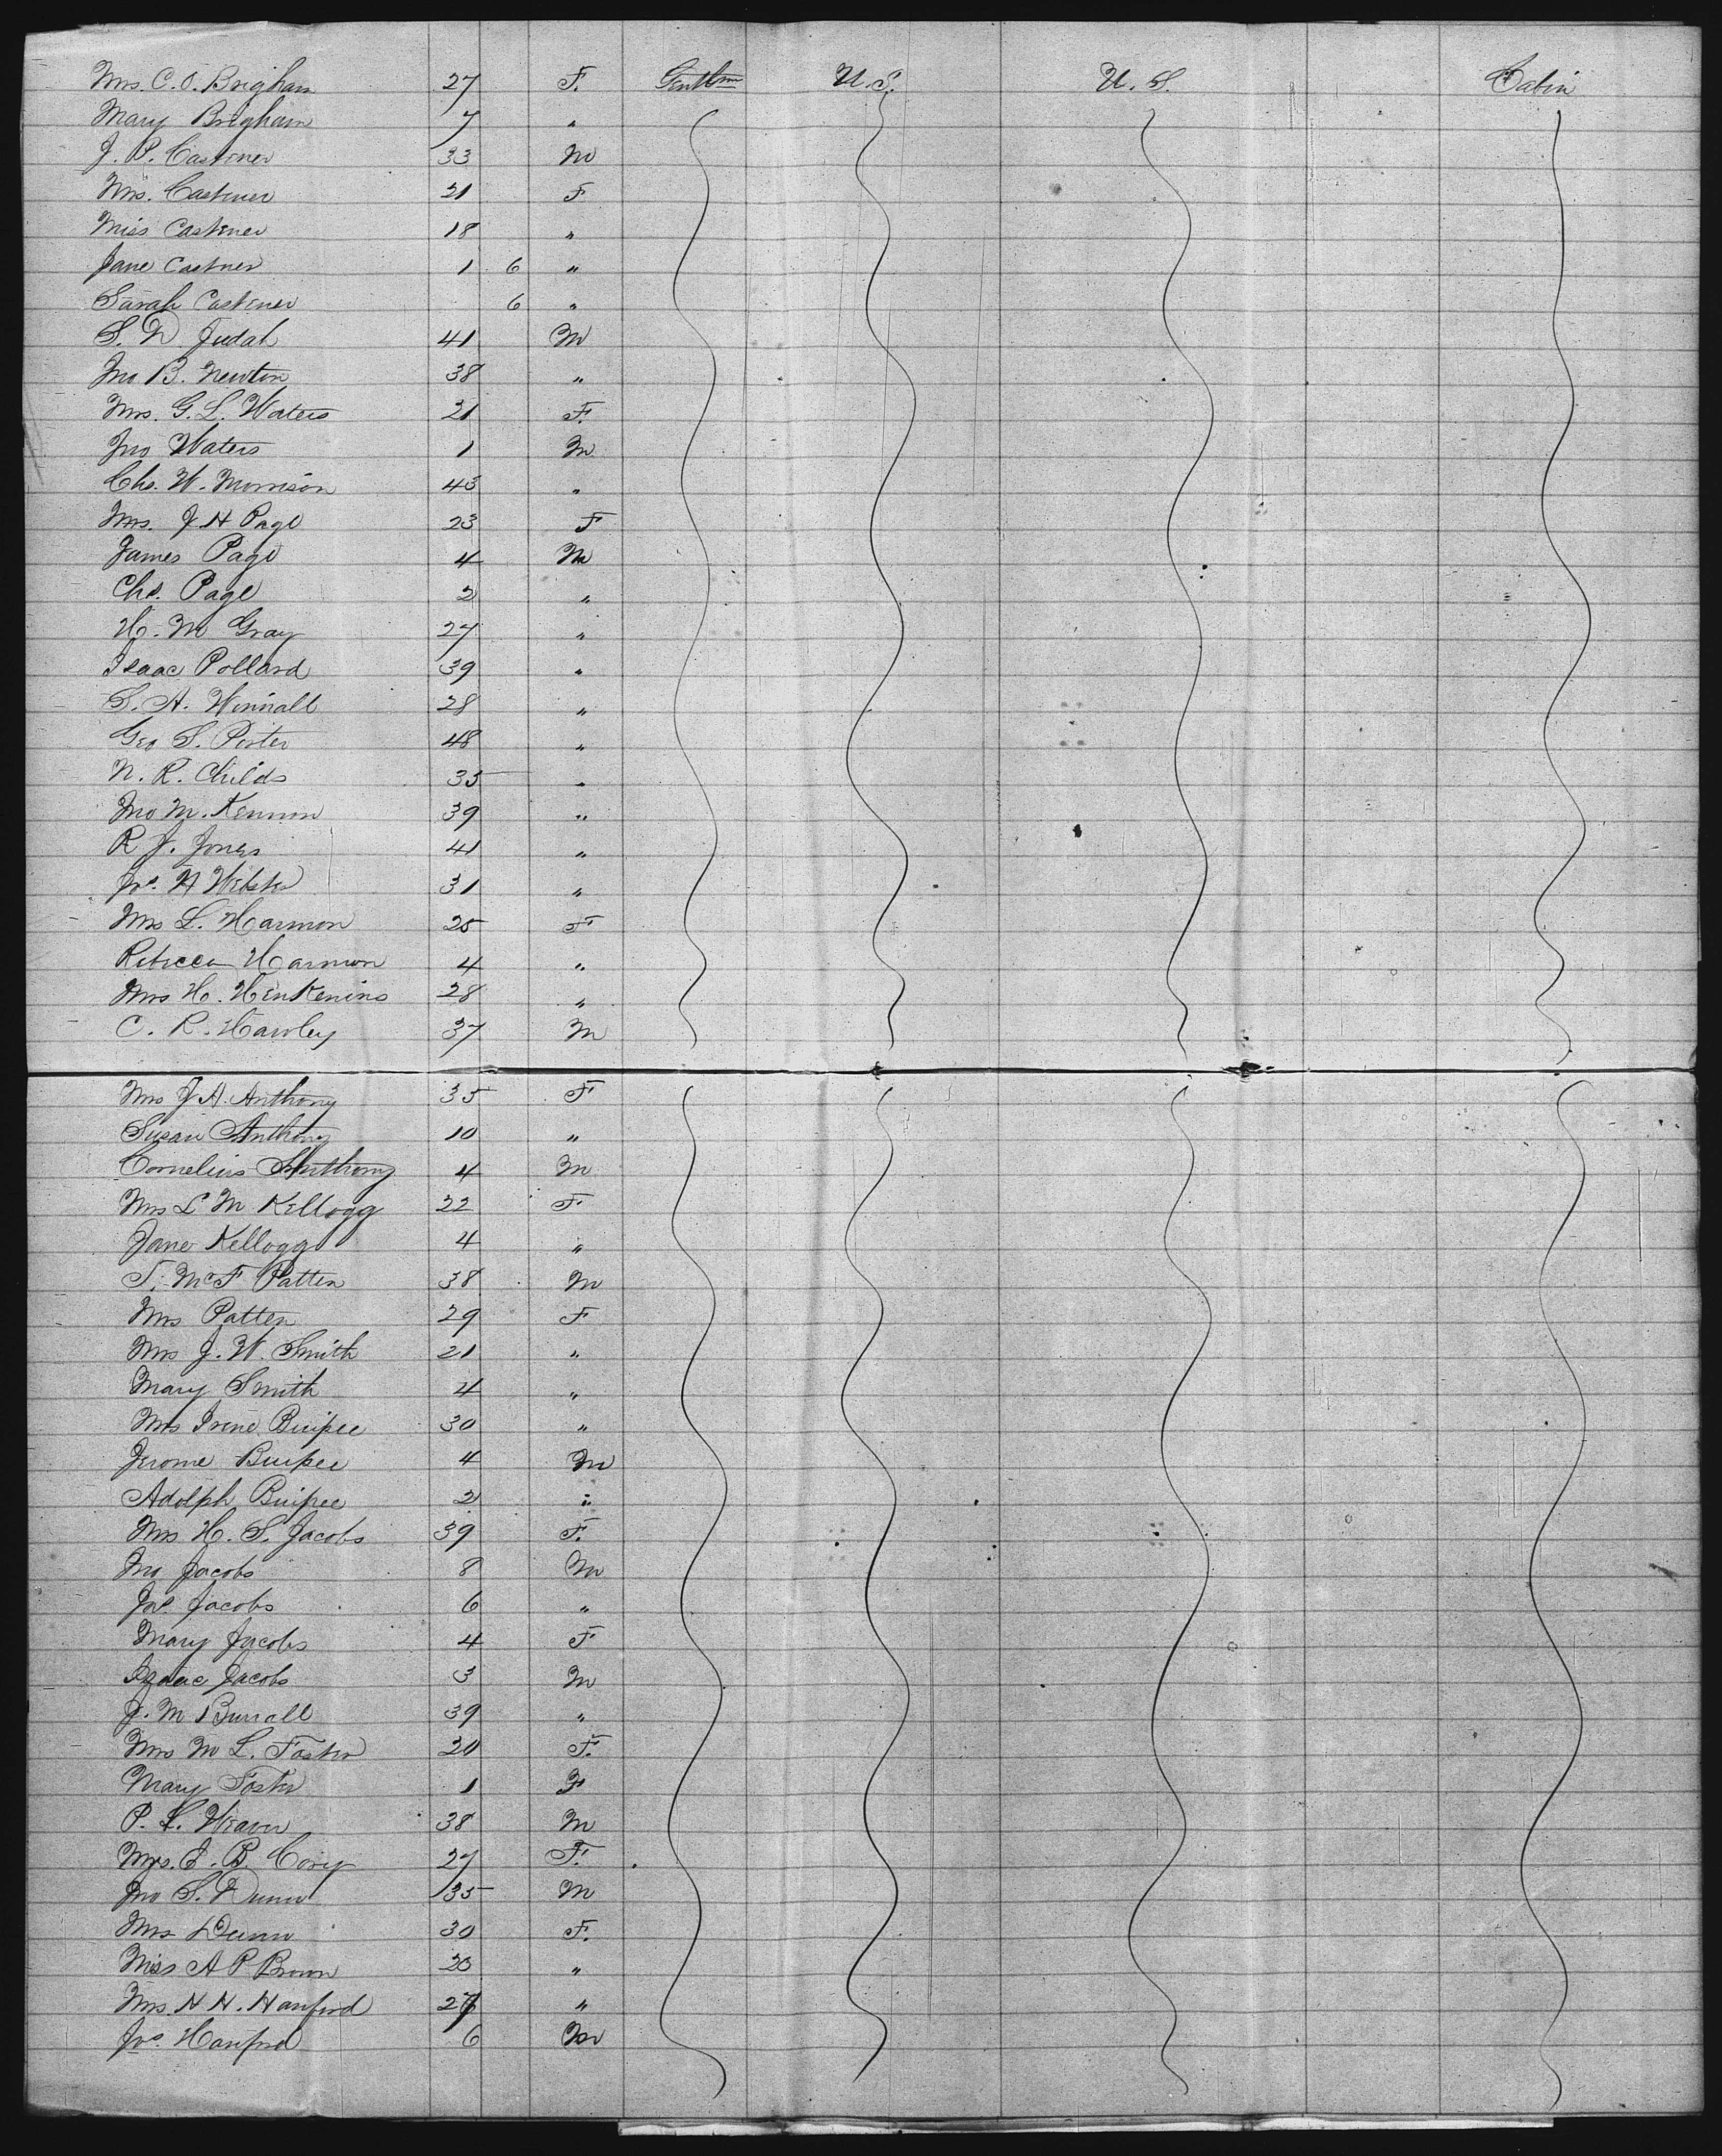 Mrs. C. O. Brigham 27 F. Gentlm U.S. U.S. Cabin
Mary Brigham 7 "
J. P. Castener 33 M
Mrs. Castener 21 F
Miss Castener 18 "
Jane Castner 1 6 "
Sarah Castener 6 "
S. D. Judah 41 M
Jno B. Newton 38 "
Mrs. G. L. Waters 21 F.
Jno Waters 1 M.
Chs. W. Morrison 43 "
Mrs. J H Page 23 F
James Page 4 M
Chs. Page 2 "
H. M Gray 27 "
Isaac Pollard 39 "
S. A. Winnall 28 "
Geo S. Porter 48 "
N. R. Childs 35 "
Jno M. Kennon 39 "
R J. Jones 41 "
Jos. H Webster 31 "
Mrs L. Harmon 25 F
Rebecca Harmon 4 "
Mrs H. Henkenins 28 "
C. R. Hawley 37 M
Mrs J A. Anthony 35 F
Susan Anthony 10 "
Cornelius Anthony 4 M
Mrs L M Kellogg 22 F
Jane Kellogg 4 "
T. McF Patten 38 M
Mrs Patten 29 F
Mrs J. W. Smith 21 "
Mary Smith 4 "
Mrs Irene Buipee 30 "
Jerome Buipee 4 M
Adolph Buipee 2 "
Mrs H. S. Jacobs 39 F.
Jno Jacobs 8 M
Jos. Jacobs 6 "
Mary Jacobs 4 F
Isaac Jacobs 3 M
J. M Burrall 39 "
Mrs M L. Foster 20 F.
Mary Foster 1 F
P. L. Weaver 38 M
Mrs. E. B. Cory 27 F.
Jno S. Dunn 35 M
Mrs Dunn 30 F.
Miss A P Brown 20 "
Mrs. H H. Hanford 27 "
Jos. Hanford 6 M